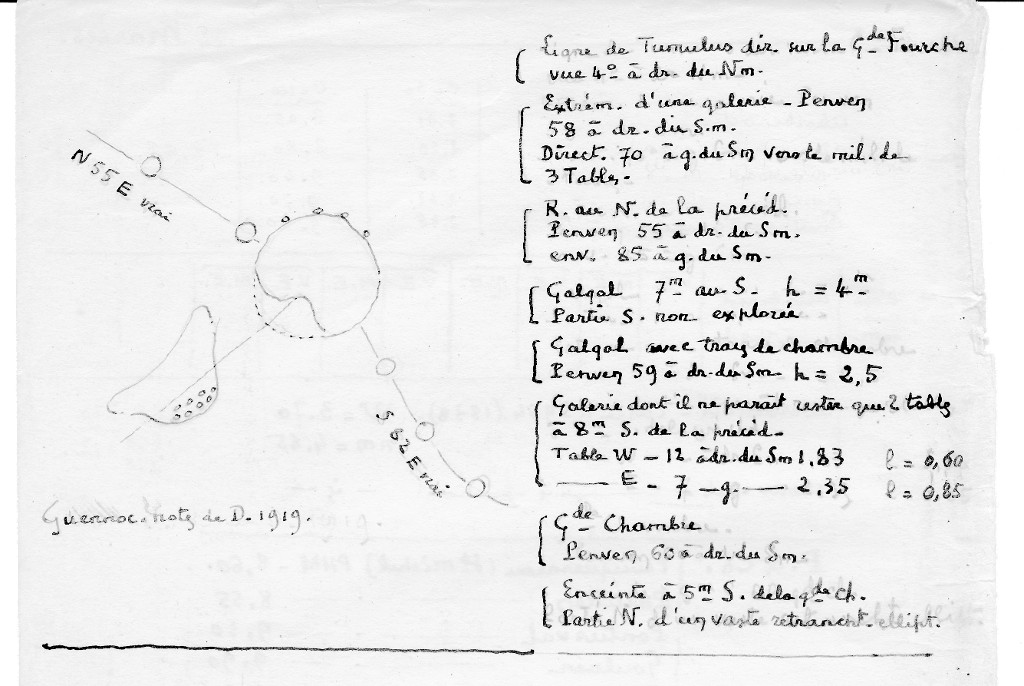 N 55 E vrai
S 62 E vrai
Guennoc. notes de D. 1919.
Ligne de Tumulus dir. sur la Gde Fourche
vue 4° à dr. du Nm.
Extrém. d'une galerie - Penven
58 à dr. du S.m.
Direct. 70 à g. du Sm vers le mil. de
3 Tables.
R. au N. de la précéd.
Penven 55 à dr. du Sm.
env. 85 à g. du Sm.
Galgal 7m au S. h = 4m
Partie S. non explorée
Galgal avec traces de chambre
Penven 59 à dr. du Sm. h = 2,5
Galerie dont il ne parait rester que 2 tables
à 8m S. de la précéd.
Table W - 12 à dr. du Sm 1,83 l = 0,60
—— E - 7 - g. —— 2,35 l = 0,85
Gde Chambre
Penven 60 à dr. du Sm.
Enceinte à 5m S. de la gde Ch.
Partie N. d'un vaste retrancht. ellipt.